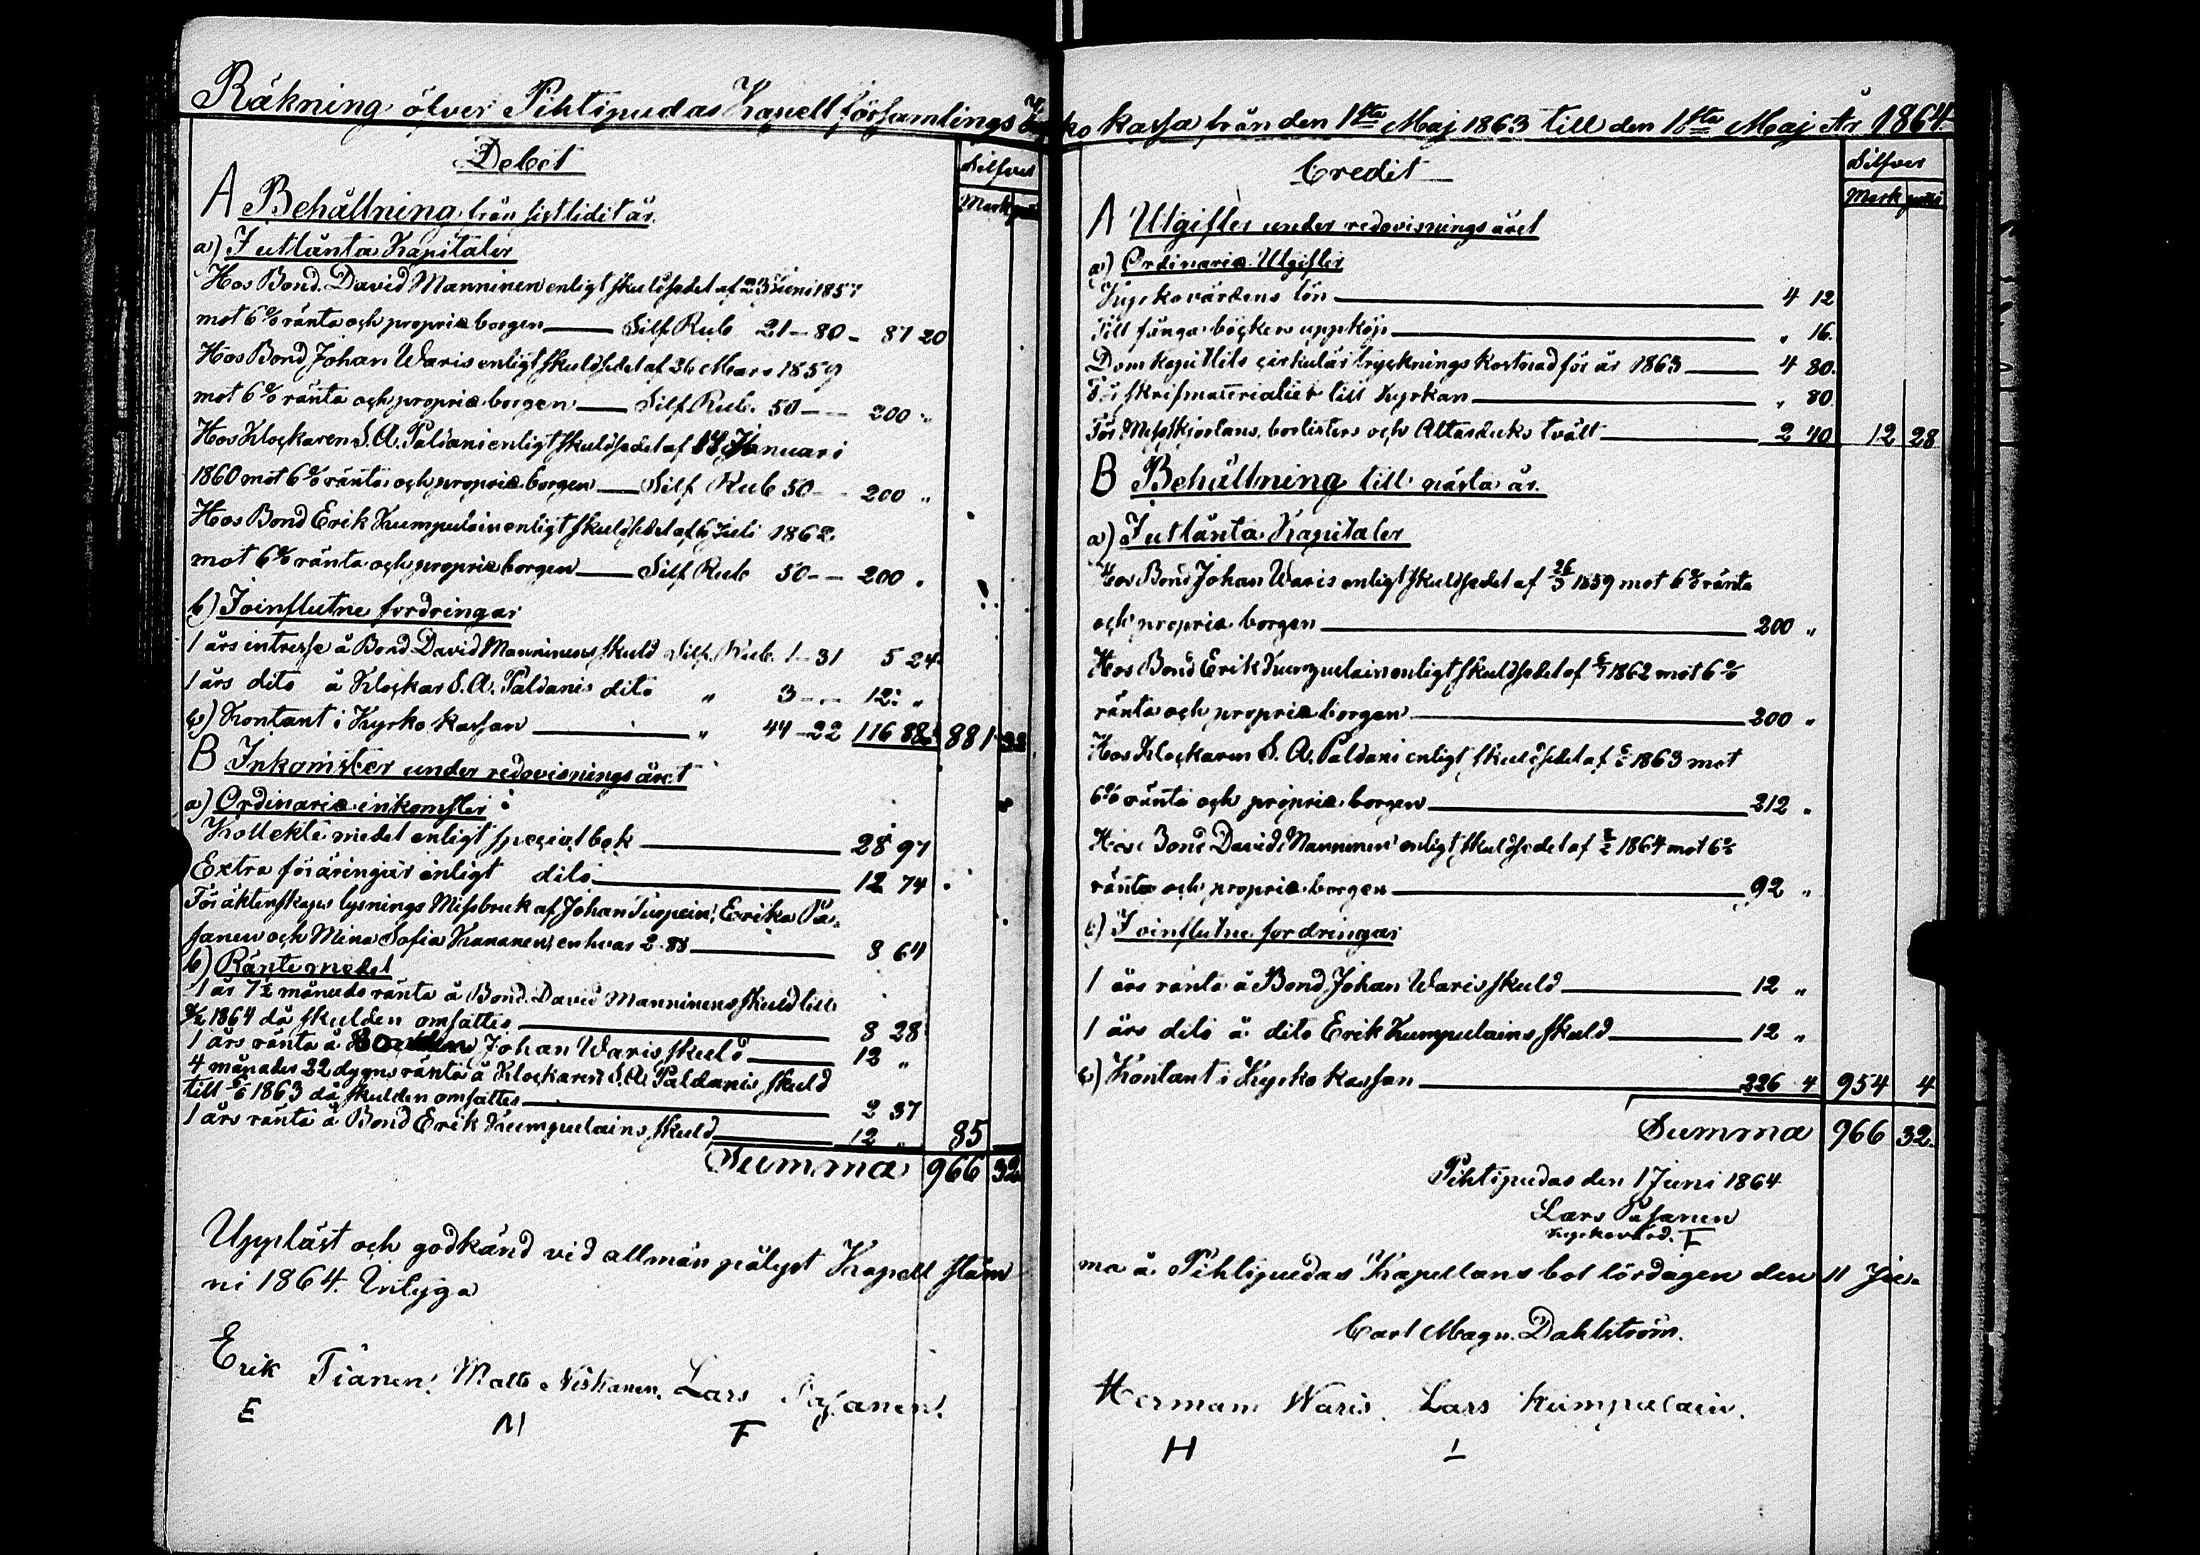 Räkning öfver Pihtipudas Kapellförsamlings Kyrko kassa från den 1sta Maj 1863 till den 1sta Maj År 1864
Debet
Silfver
Mark penni
A Behållning från sistlidit år.
a) I utlånta Kapitaler
Hos Bond. David Manninen enligt skuldsedel af 23 Juni 1857
mot 6 % ränta och proprie borgen — Silf Rub 21 – 80 – 87 20
Hos Bond Johan Waris enligt skuldsedel af 26 Mars 1859
mot 6 % ränta och proprie borgen — Silf Rub. 50 – – 200 "
Hos Klockaren S. A. Paldani enligt skuldsedel af 14 Januari
1860 mot 6 % ränta och proprie borgen — Silf Rub 50 – – 200 "
Hos Bond Erik Kumpulain enligt skuldsedel af 6 Juli 1862
mot 6 % ränta och proprie borgen — Silf Rub 50 – – 200 "
b) Ioinflutne fordringar
1 års intresse å Bond David Manninens skuld Silf. Rub. 1 – 31 5 24
1 års dito å Klockar S. A. Paldanis dito " 3 – – 12 "
c) Kontant i Kyrko kassan — " 44 – 22 116 88 881 32
B Inkomster under redovisnings året
a) Ordinarie inkomster
Kollekte medel enligt special bok — 28 97
Extra föräringar enligt dito — 12 74
För äktenskaps lysnings Missbruk af Johan Turpein, Erika Pa-
sanen och Mina Sofia Kananen, enhvar 2. 88 — 8 64
b) Räntemedel
1 år 7½ månads ränta å Bond. David Manninens skuld till
1864 då skulden omsattes — 8 28
1 års ränta å Bonden Johan Waris skuld — 12 "
4 månader 22 dygns ränta å Klockaren S. A. Paldanis skuld
till 1863 då skulden omsattes — 2 37
1 års ränta å Bond Erik Kumpulains skuld — 12 " 85 —
Summa 966 32
Credit
Silfver
Mark penni
A Utgifter under redovisnings året
a) Ordinarie Utgifter
Kyrkovärdens lön — 4 12
Till fånga böckers uppköp — " 16.
Domkapitlets cirkulär trycknings kostnad för år 1863 — 4 80.
För skrifmaterialier till kyrkan — " 80
För Messkjortans, borlisters och Altarduks tvätt — 2 40 12 28
B Behållning till nästa år.
a) I utlånta Kapitaler
Hos Bond Johan Waris enligt skuldsedel af 26/3 1859 mot 6 % ränta
och proprie borgen — 200 "
Hos Bond Erik Kumpulain enligt skuldsedel af 6/7 1862 mot 6 %
ränta och proprie borgen — 200 "
Hos Klockaren S. A. Paldani enligt skuldsedel af 1863 mot
6 % ränta och proprie borgen — 212 "
Hos Bond David Manninen enligt skuldsedel af 1864 mot 6 %
ränta och proprie borgen — 92 "
b) Ioinflutne fordringar
1 års ränta å Bond Johan Waris skuld — 12 "
1 års dito å dito Erik Kumpulains skuld — 12 "
c) Kontant i Kyrko kassan — 226 4 954 4
Summa 966 32.
Pihtipudas den 1 Juni 1864
Lars Pasanen
Kyrkovärd. F
Uppläst och godkänd vid allmän pålyst Kapell stäm
ma å Pihtipudas Kapellans bol lördagen den 11 Ju-
ni 1864. Intyga
Carl Magn. Dahlström.
Erik Tiänen. Matts Niskanen. Lars Pasanen. Herman Waris. Lars Kumpulain.
E N F H L